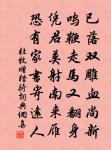 已落双雕血尚新
鸣鞭走马又翻身
凭君莫射南来雁
恐有家书寄远人
杜牧赠猎骑词典网集